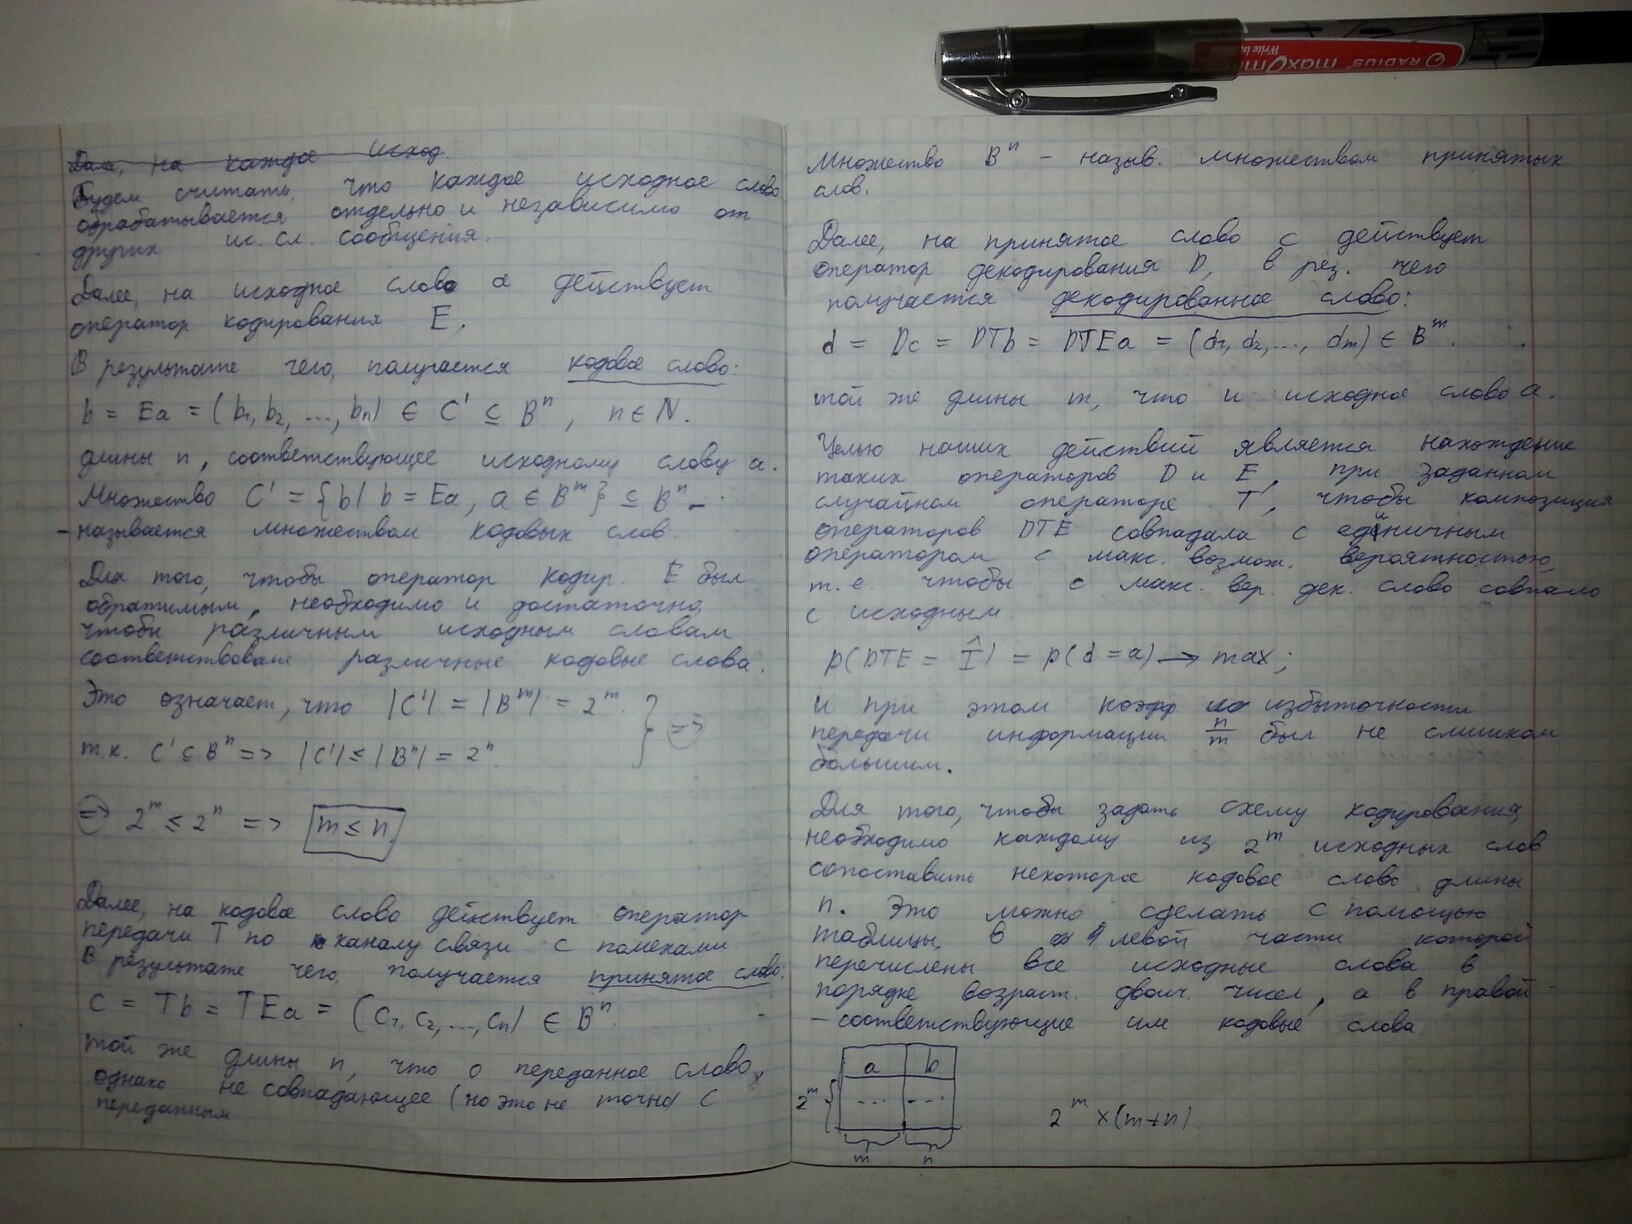 Далее, на каждое исход.
Будем считать, что каждое исходное слово
обрабатывается отдельно и независимо от
других ис. сл. сообщения.
Далее, на исходное слово a действует
оператор кодирования E.
В результате чего, получается кодовое слово:
b = Ea = (b₁, b₂, ..., bn) ∈ C' ⊆ Bⁿ, n ∈ N.
длины n, соответствующее исходному слову a.
Множество C' = {b | b = Ea, a ∈ Bᵐ} ⊆ Bⁿ –
– называется множеством кодовых слов.
Для того, чтобы оператор кодир. E был
обратимым, необходимо и достаточно,
чтобы различным исходным словам
соответствовали различные кодовые слова.
Это означает, что |C'| = |Bᵐ| = 2ᵐ. } ⇒
т.к. C' ⊆ Bⁿ => |C'| ≤ |Bⁿ| = 2ⁿ.
⇒ 2ᵐ ≤ 2ⁿ => m ≤ n
Далее, на кодовое слово действует оператор
передачи T по каналу связи с помехами
В результате чего получается принятое слово:
c = Tb = TEa = (c₁, c₂, ..., cn) ∈ Bⁿ.
той же длины n, что о переданное слово,
однако не совпадающее (но это не точно) с
переданным
Множество Bⁿ – назыв. множеством принятых
слов.
Далее, на принятое слово c действует
оператор декодирования D, в рез. чего
получается декодированное слово:
d = Dc = DTb = DTEa = (d₁, d₂, ..., dm) ∈ Bᵐ.
той же длины m, что и исходное слово a.
Целью наших действий является нахождение
таких операторов D и E, при заданном
случайном операторе T, чтобы композиция
операторов DTE совпадала с единичным
оператором с макс. возмож. вероятностью,
т.е. чтобы с макс. вер. дек. слово совпало
с исходным.
p(DTE = Î) = p(d = a) → max;
и при этом коэфф избыточности
передачи информации n/m был не слишком
большим.
Для того, чтобы задать схему кодирования,
необходимо каждому из 2ᵐ исходных слов
сопоставить некоторое кодовое слово длины
n. Это можно сделать с помощью
таблицы, в левой части которой
перечислены все исходные слова в
порядке возраст. двоич. чисел, а в правой –
– соответствующие им кодовые слова.
a b
2ᵐ { ... ...
m n
2ᵐ × (m+n)
RADIUS maxOm
Write in